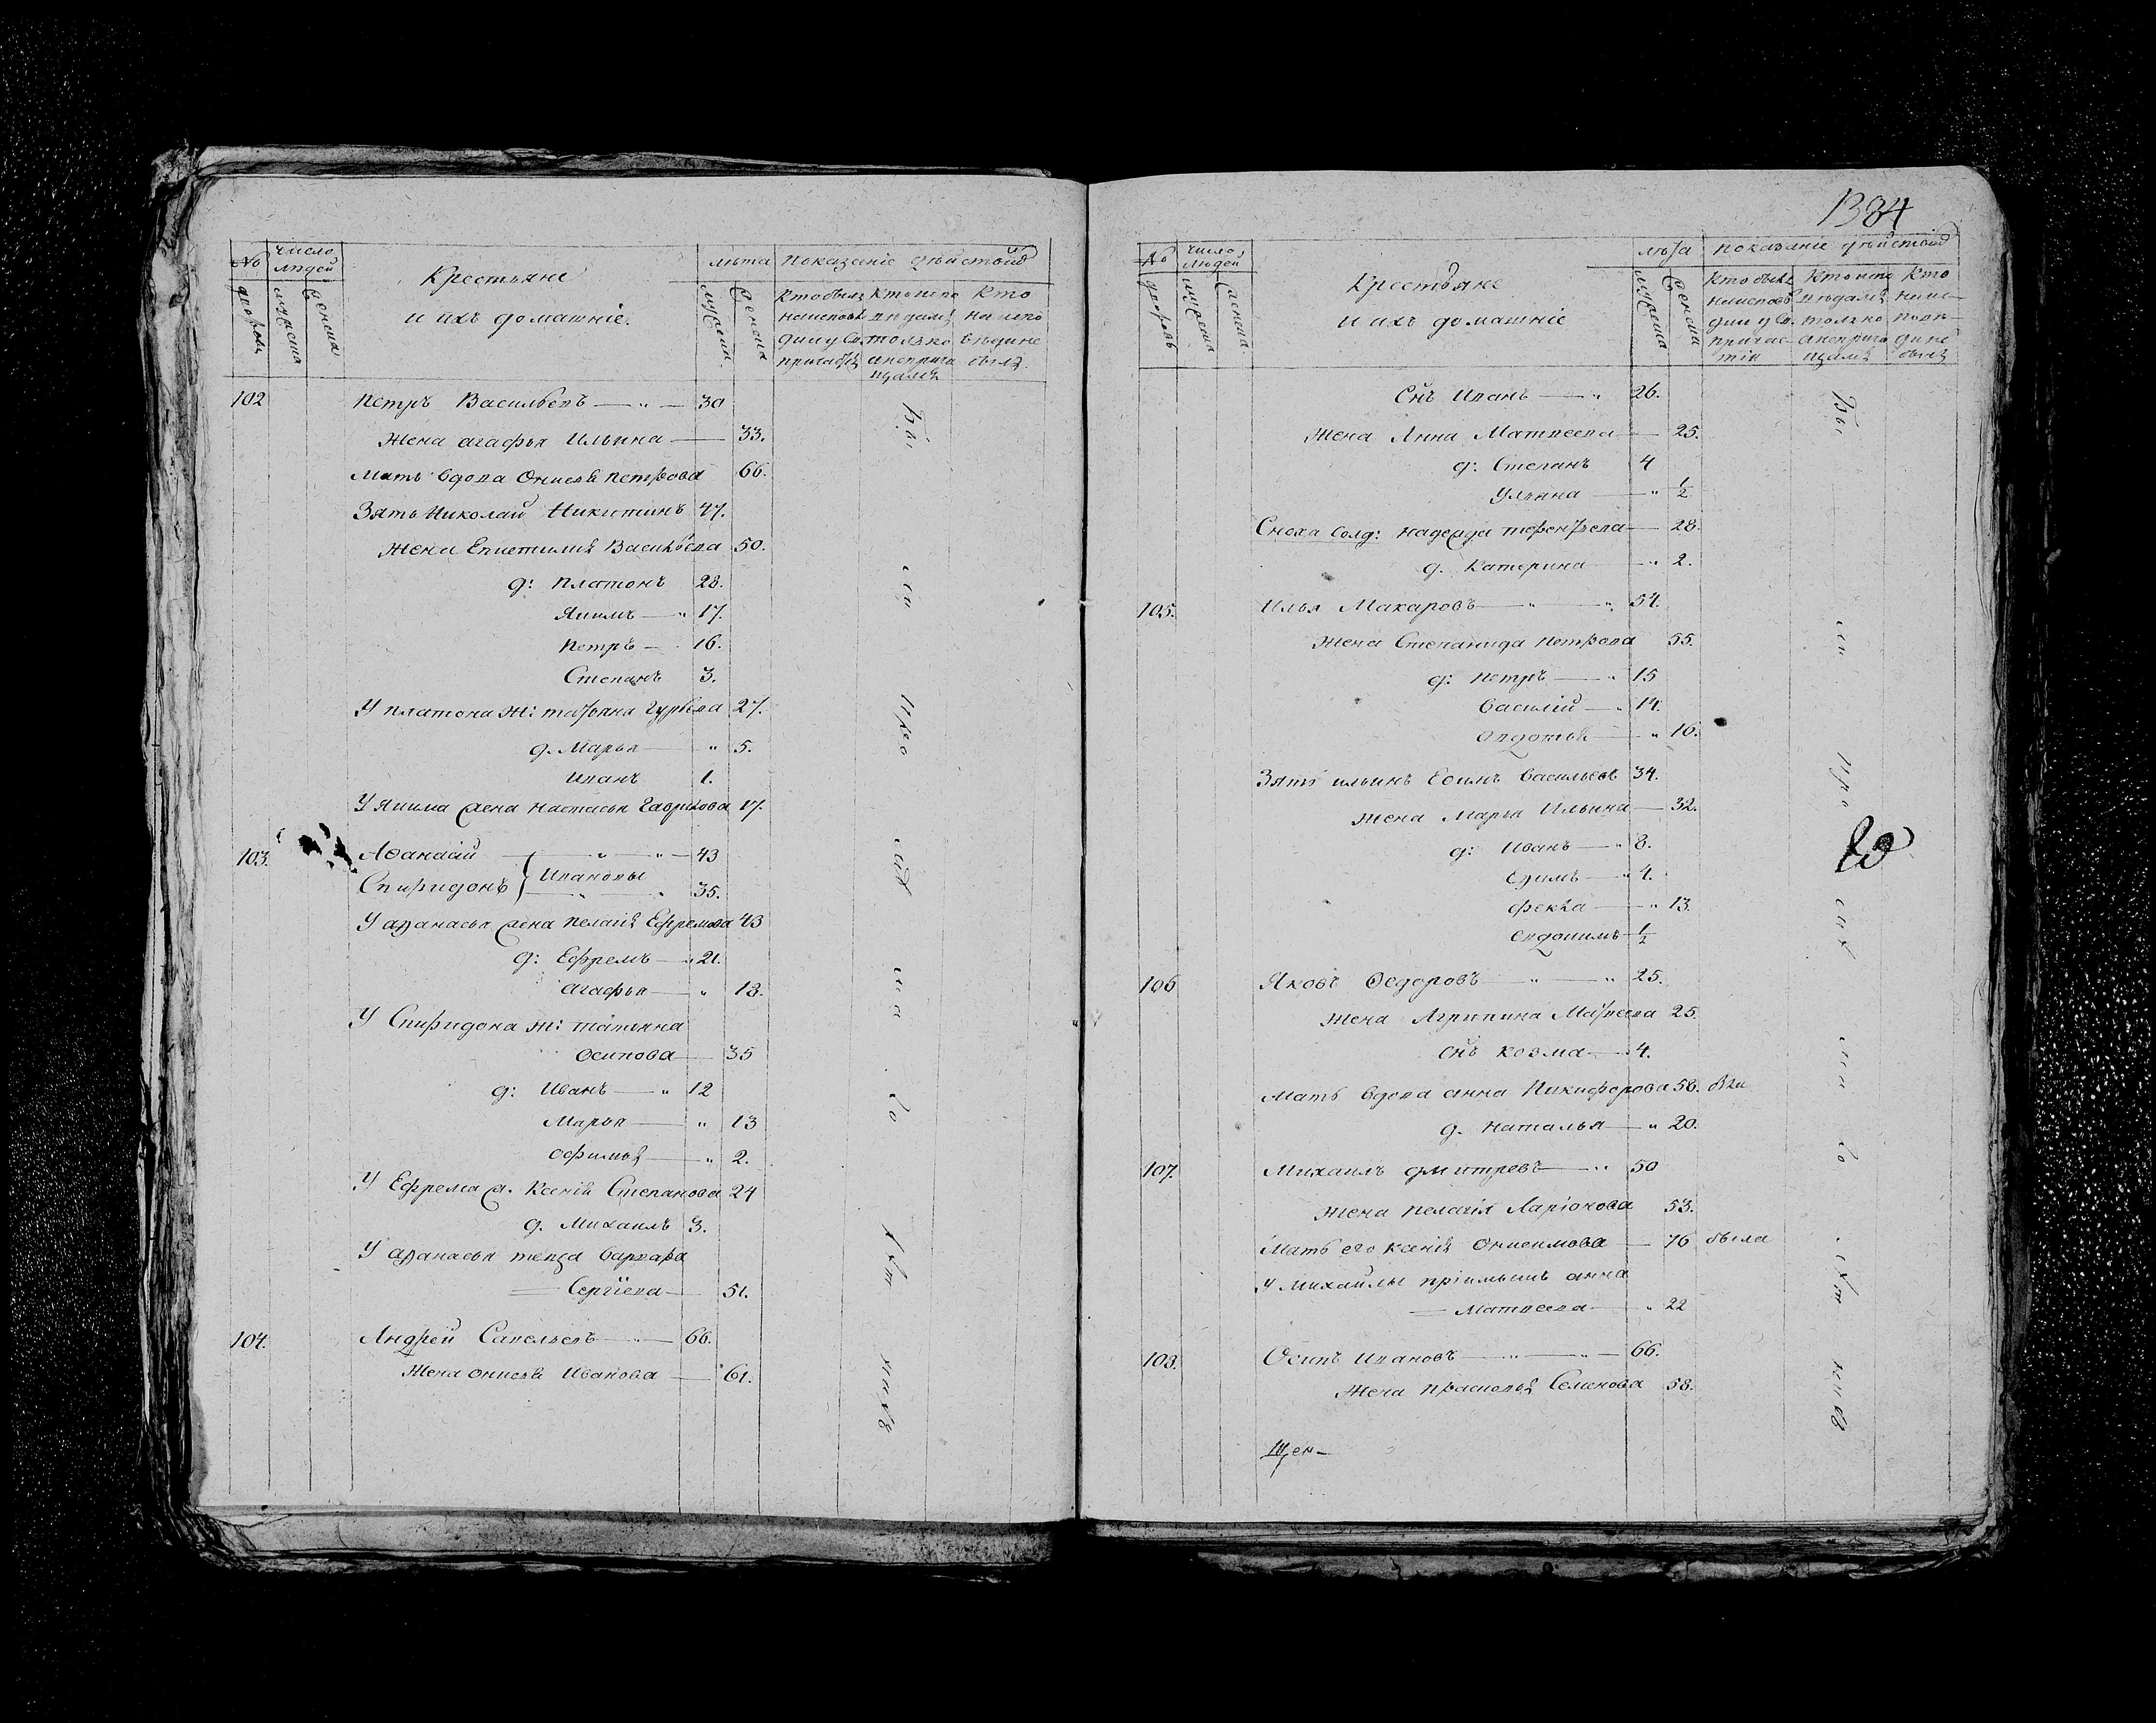 № дворовъ
число людей
мужеска
женска
Крестьяне
и ихъ домашніе.
лѣта
мужеск.
женска
Показаніе дѣйствій
Кто былъ
на исповѣ
ди и у Св.
причастія
Кто испо
видался
только
а не прича
щался
Кто
на испо
вѣди не
былъ.
102 Петръ Васильевъ 30
Жена Агафья Ильина 33.
Мать вдова Онисья Петрова 66.
Зять Николай Никитинъ 47.
Жена Епистимія Васильева 50.
д: Платонъ 28.
Якимъ 17.
Петръ 16.
Степанъ 3.
У Платона ж: Татьяна Гурьева 27.
д. Марья 5.
Иванъ 1.
У Якима жена Настасья Гаврилова 17.
103. Аѳанасій 43
Ивановы
Спиридонъ 35.
У Афанасья жена Пелагія Ефремова 43
д: Ефремъ 21.
Агафья 13.
У Спиридона ж: Татьяна
Осипова 35
д: Иванъ 12
Марья 13
Офимья 2.
У Ефрема ж. Ксенія Степанова 24
д. Михаилъ 3.
У Афанасья теща Варвара
Сергіева 51.
104. Андрей Савельевъ 66.
Жена Онисья Иванова 61.
1384
№ дворовъ
число людей
мужеска
женска.
Крестьяне
и ихъ домашніе
лѣта
мужеска
женска
показаніе дѣйствій
Кто былъ
на исповѣ
ди и у Св.
причас
тія
Кто испо
вѣдался
только
а не прича
щался
Кто
на ис
повѣ
ди не
былъ
Снъ Иванъ 26.
Жена Анна Матвеева 25.
д: Степанъ 4
Ульяна ½
Сноха солд: Надежда Терентьева 28.
д. Катерина 2.
105. Илья Макаровъ 54.
Жена Степанида Петрова 55.
д: Петръ 15
Василій 14.
Авдотья 16.
Зять Ильинъ Ефимъ Васильевъ 34.
Жена Марья Ильина 32.
д: Иванъ 8.
Ефимъ 4.
Фекла 13.
Евдокимъ ½
106 Яковъ Ѳедоровъ 25.
Жена Агрипина Матвеева 25.
Снъ Козма 4.
Мать вдова Анна Никифорова 58.
д. Наталья 20.
107. Михаилъ Дмитревъ 50
Жена Пелагія Ларіонова 53.
Мать его Ксенія Онисимова 76 была
У Михайлы пріимышъ Анна
Матвеева 22
108. Осипъ Ивановъ 66.
Жена Прасковья Семенова 58.